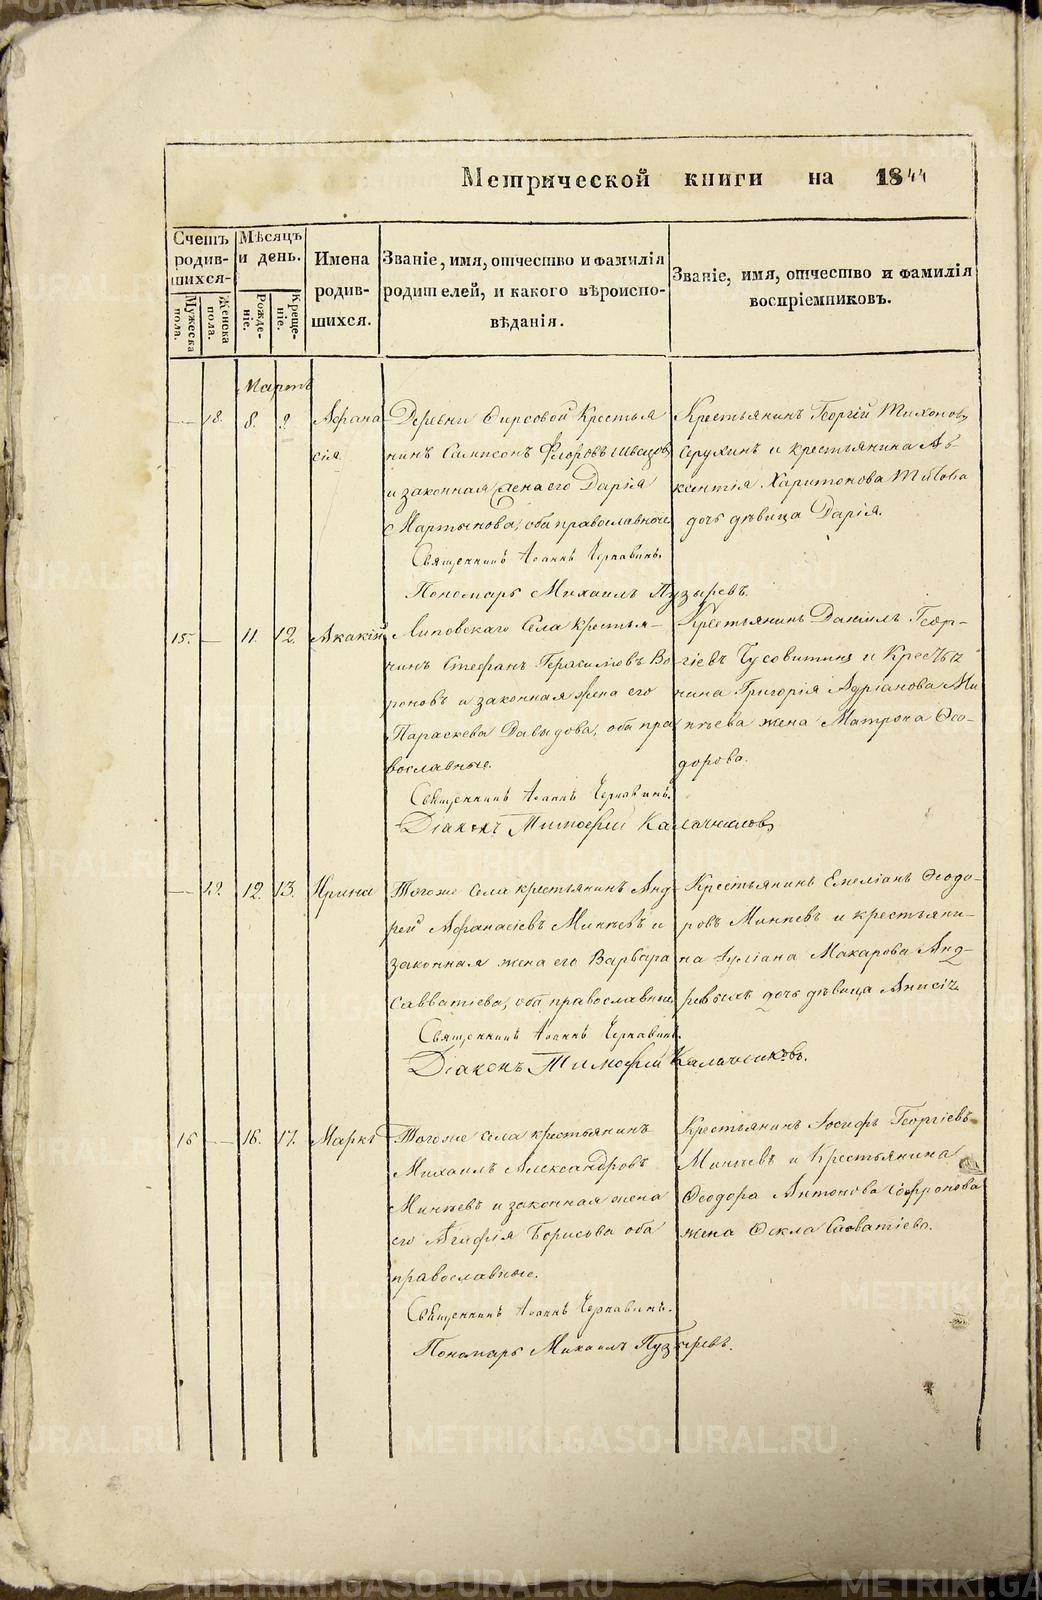 Метрической книги на 1844
Счетъ родив-шихся.
Мужеска пола.
Женска пола.
Мѣсяцъ и день.
Рожде-ніе.
Креще-ніе.
Имена родив-шихся.
Званіе, имя, отчество и фамилія
родителей, и какого вѣроиспо-
вѣданія.
Званіе, имя, отчество и фамилія
воспріемниковъ.
Мартъ
— 18. 8. 9. Афана
сія
Деревни Фирсовой Крестья
нинъ Сампсонъ Флоровъ Швецовъ
и законная жена его Дарія
Мартынова, оба православные
Священникъ Іоаннъ Чернавинъ.
Пономарь Михаилъ Пузыревъ.
Крестьянинъ Георгій Тихоновъ
Серухинъ и крестьянина Ав-
ксентія Харитонова Титова
дочь дѣвица Дарія.
15. — 11. 12. Акакій
Липовскаго Села крестья-
нинъ Стефанъ Герасимовъ Во-
роновъ и законная жена его
Параскева Давыдова, оба пра
вославные.
Священникъ Іоаннъ Чернавинъ.
Діаконъ Тимофей Калачниковъ
Крестьянинъ Даніилъ Геор-
гіевъ Чусовитинъ и Крестья
нина Григорія Адріанова Ми
нѣева жена Матрона Ѳео-
дорова.
— 12. 13. Ирина
Тогоже села крестьянинъ Анд
рей Афанасіевъ Минѣевъ и
законная жена его Варвара
Савватіева, оба православные,
Священникъ Іоаннъ Чернавинъ.
Діаконъ Тимофей Калачниковъ.
Крестьянинъ Емеліанъ Ѳеодо-
ровъ Минѣевъ и крестьяни-
на Іуліана Макарова Анд-
ревыхъ дочь дѣвица Анисія
16 — 16. 17. Маркъ
Тогоже села крестьянинъ
Михаилъ Александровъ
Минѣевъ и законная жена
его Агафія Борисова оба
православные.
Священникъ Іоаннъ Чернавинъ.
Пономарь Михаилъ Пузыревъ.
Крестьянинъ Іосифъ Георгіевъ
Минѣевъ и Крестьянина
Ѳеодора Антонова Софронова
жена Ѳекла Савватіева.
METRIKI.GASO-URAL.RU